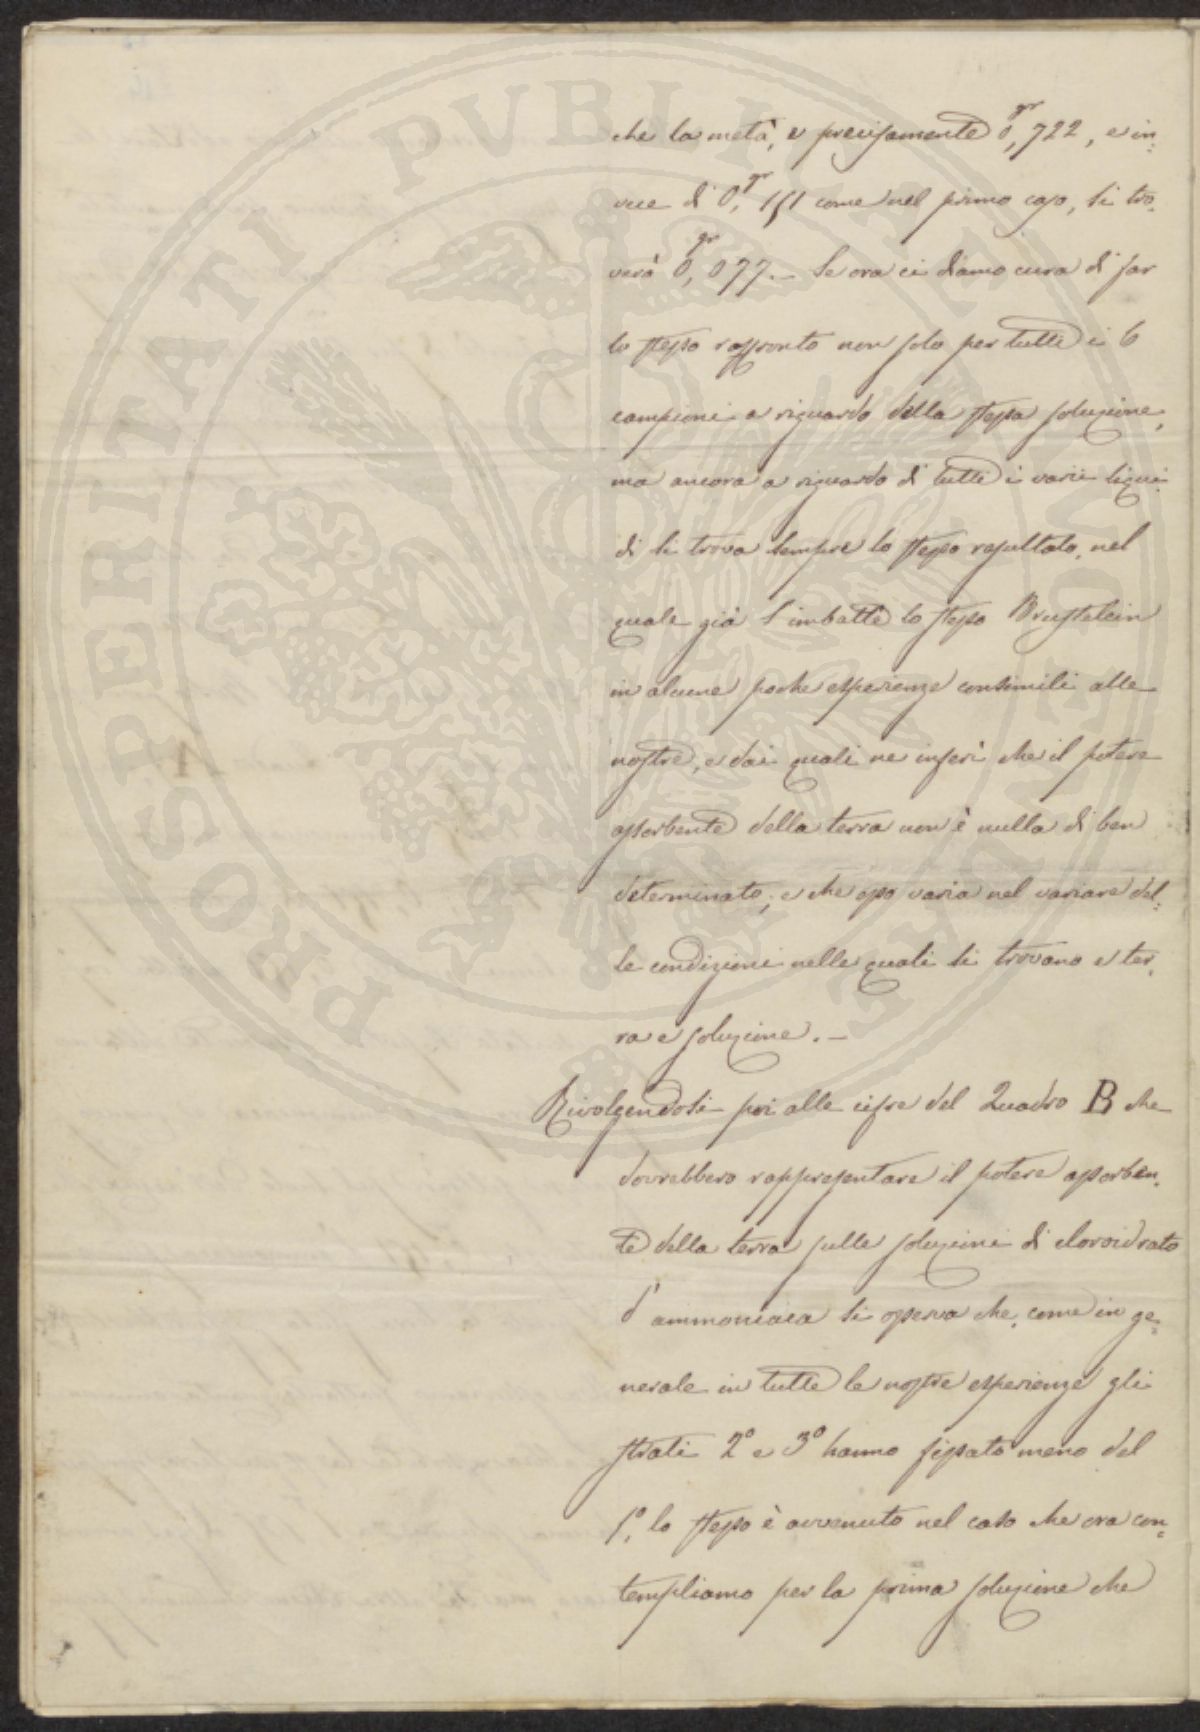 che la metà, e precisamente 0,gr722, e in=
vece di 0,gr151 come nel primo caso, si tro=
verà 0,gr077. — Se ora ci diamo cura di far
lo stesso raffronto non solo per tutti i 6
campioni a riguardo della stessa soluzione,
ma ancora a riguardo di tutti i varii liqui=
di si trova sempre lo stesso resultato, nel
quale già s'imbattè lo stesso Brustelein
in alcune poche esperienze consimili alle
nostre, e dai quali ne inferì che il potere
assorbente della terra non è nulla di ben
determinato; e che esso varia nel variare del=
le condizioni nelle quali si trovano e ter=
ra e soluzione. —
Rivolgendosi poi alle cifre del Quadro B che
dovrebbero rappresentare il potere assorben=
te della terra sulle soluzioni di cloroidrato
d'ammoniaca si osserva che, come in ge=
nerale in tutte le nostre esperienze gli
strati 2º e 3º hanno fissato meno del
1º, lo stesso è avvenuto nel caso che ora con=
templiamo per la prima soluzione che
PROSPERITATI PVBLICAE